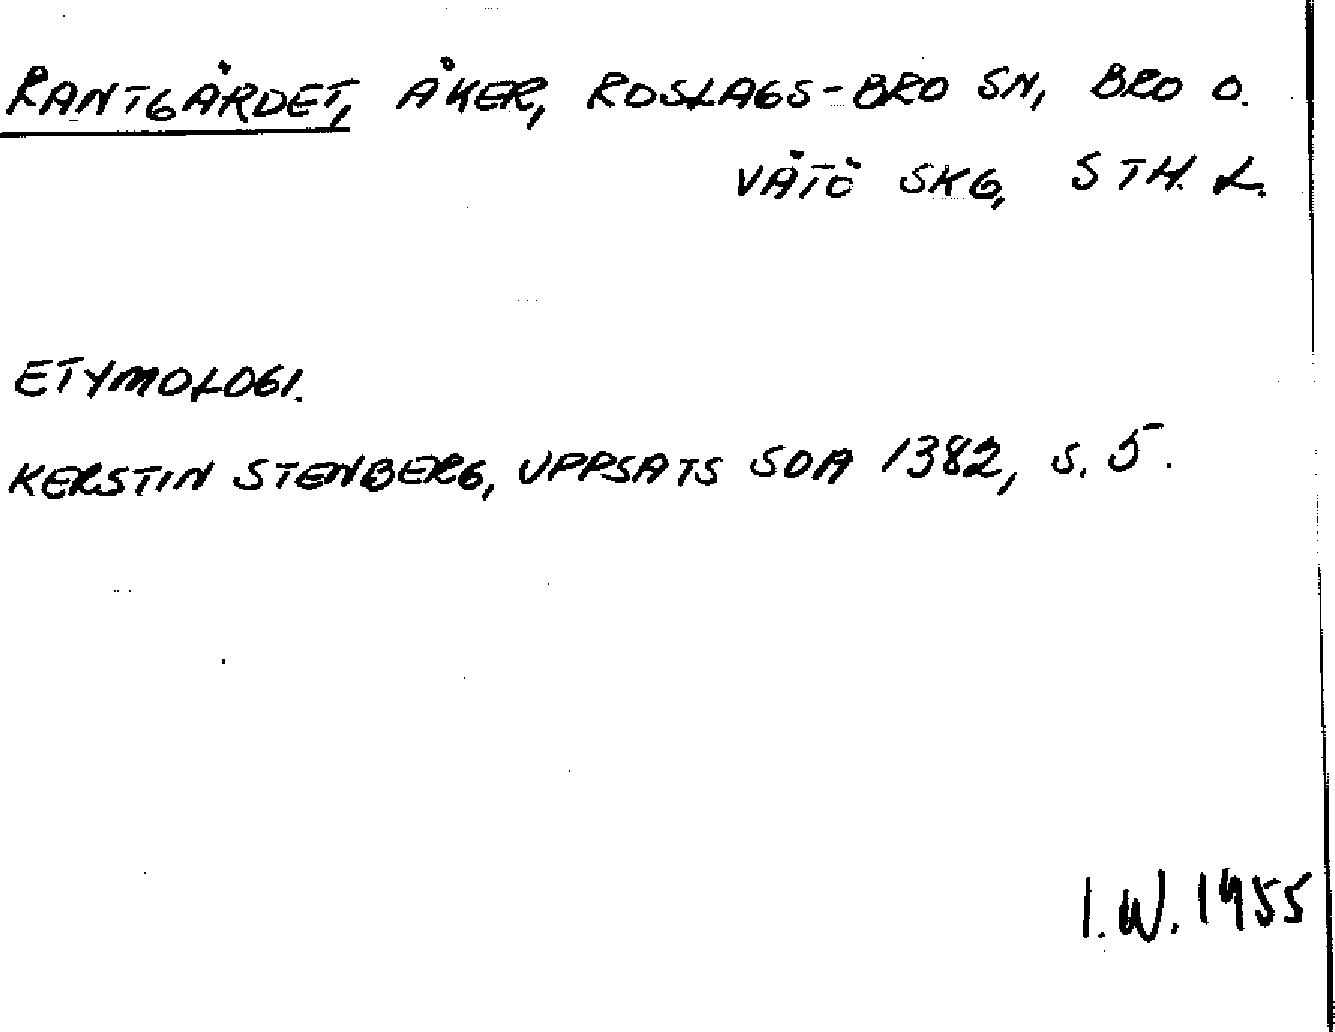 RANTGÄRDET, ÅKER, ROSLAGS-BRO SN, BRO O.
VÄTÖ SKG, STH. L.
ETYMOLOGI.
KERSTIN STENBERG, UPPSATS SOA 1382, S. 5.
I.W. 1955